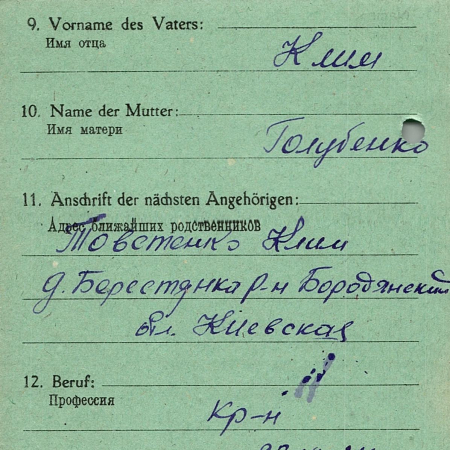 9. Vorname des Vaters:
Имя отца
Клим
10. Name der Mutter:
Имя матери
Голубенко
11. Anschrift der nächsten Angehörigen:
Адрес ближайших родственников
Товстенко Клим
д. Берестянка р-н Бородянский
обл. Киевская
12. Beruf:
Профессия
кр-н